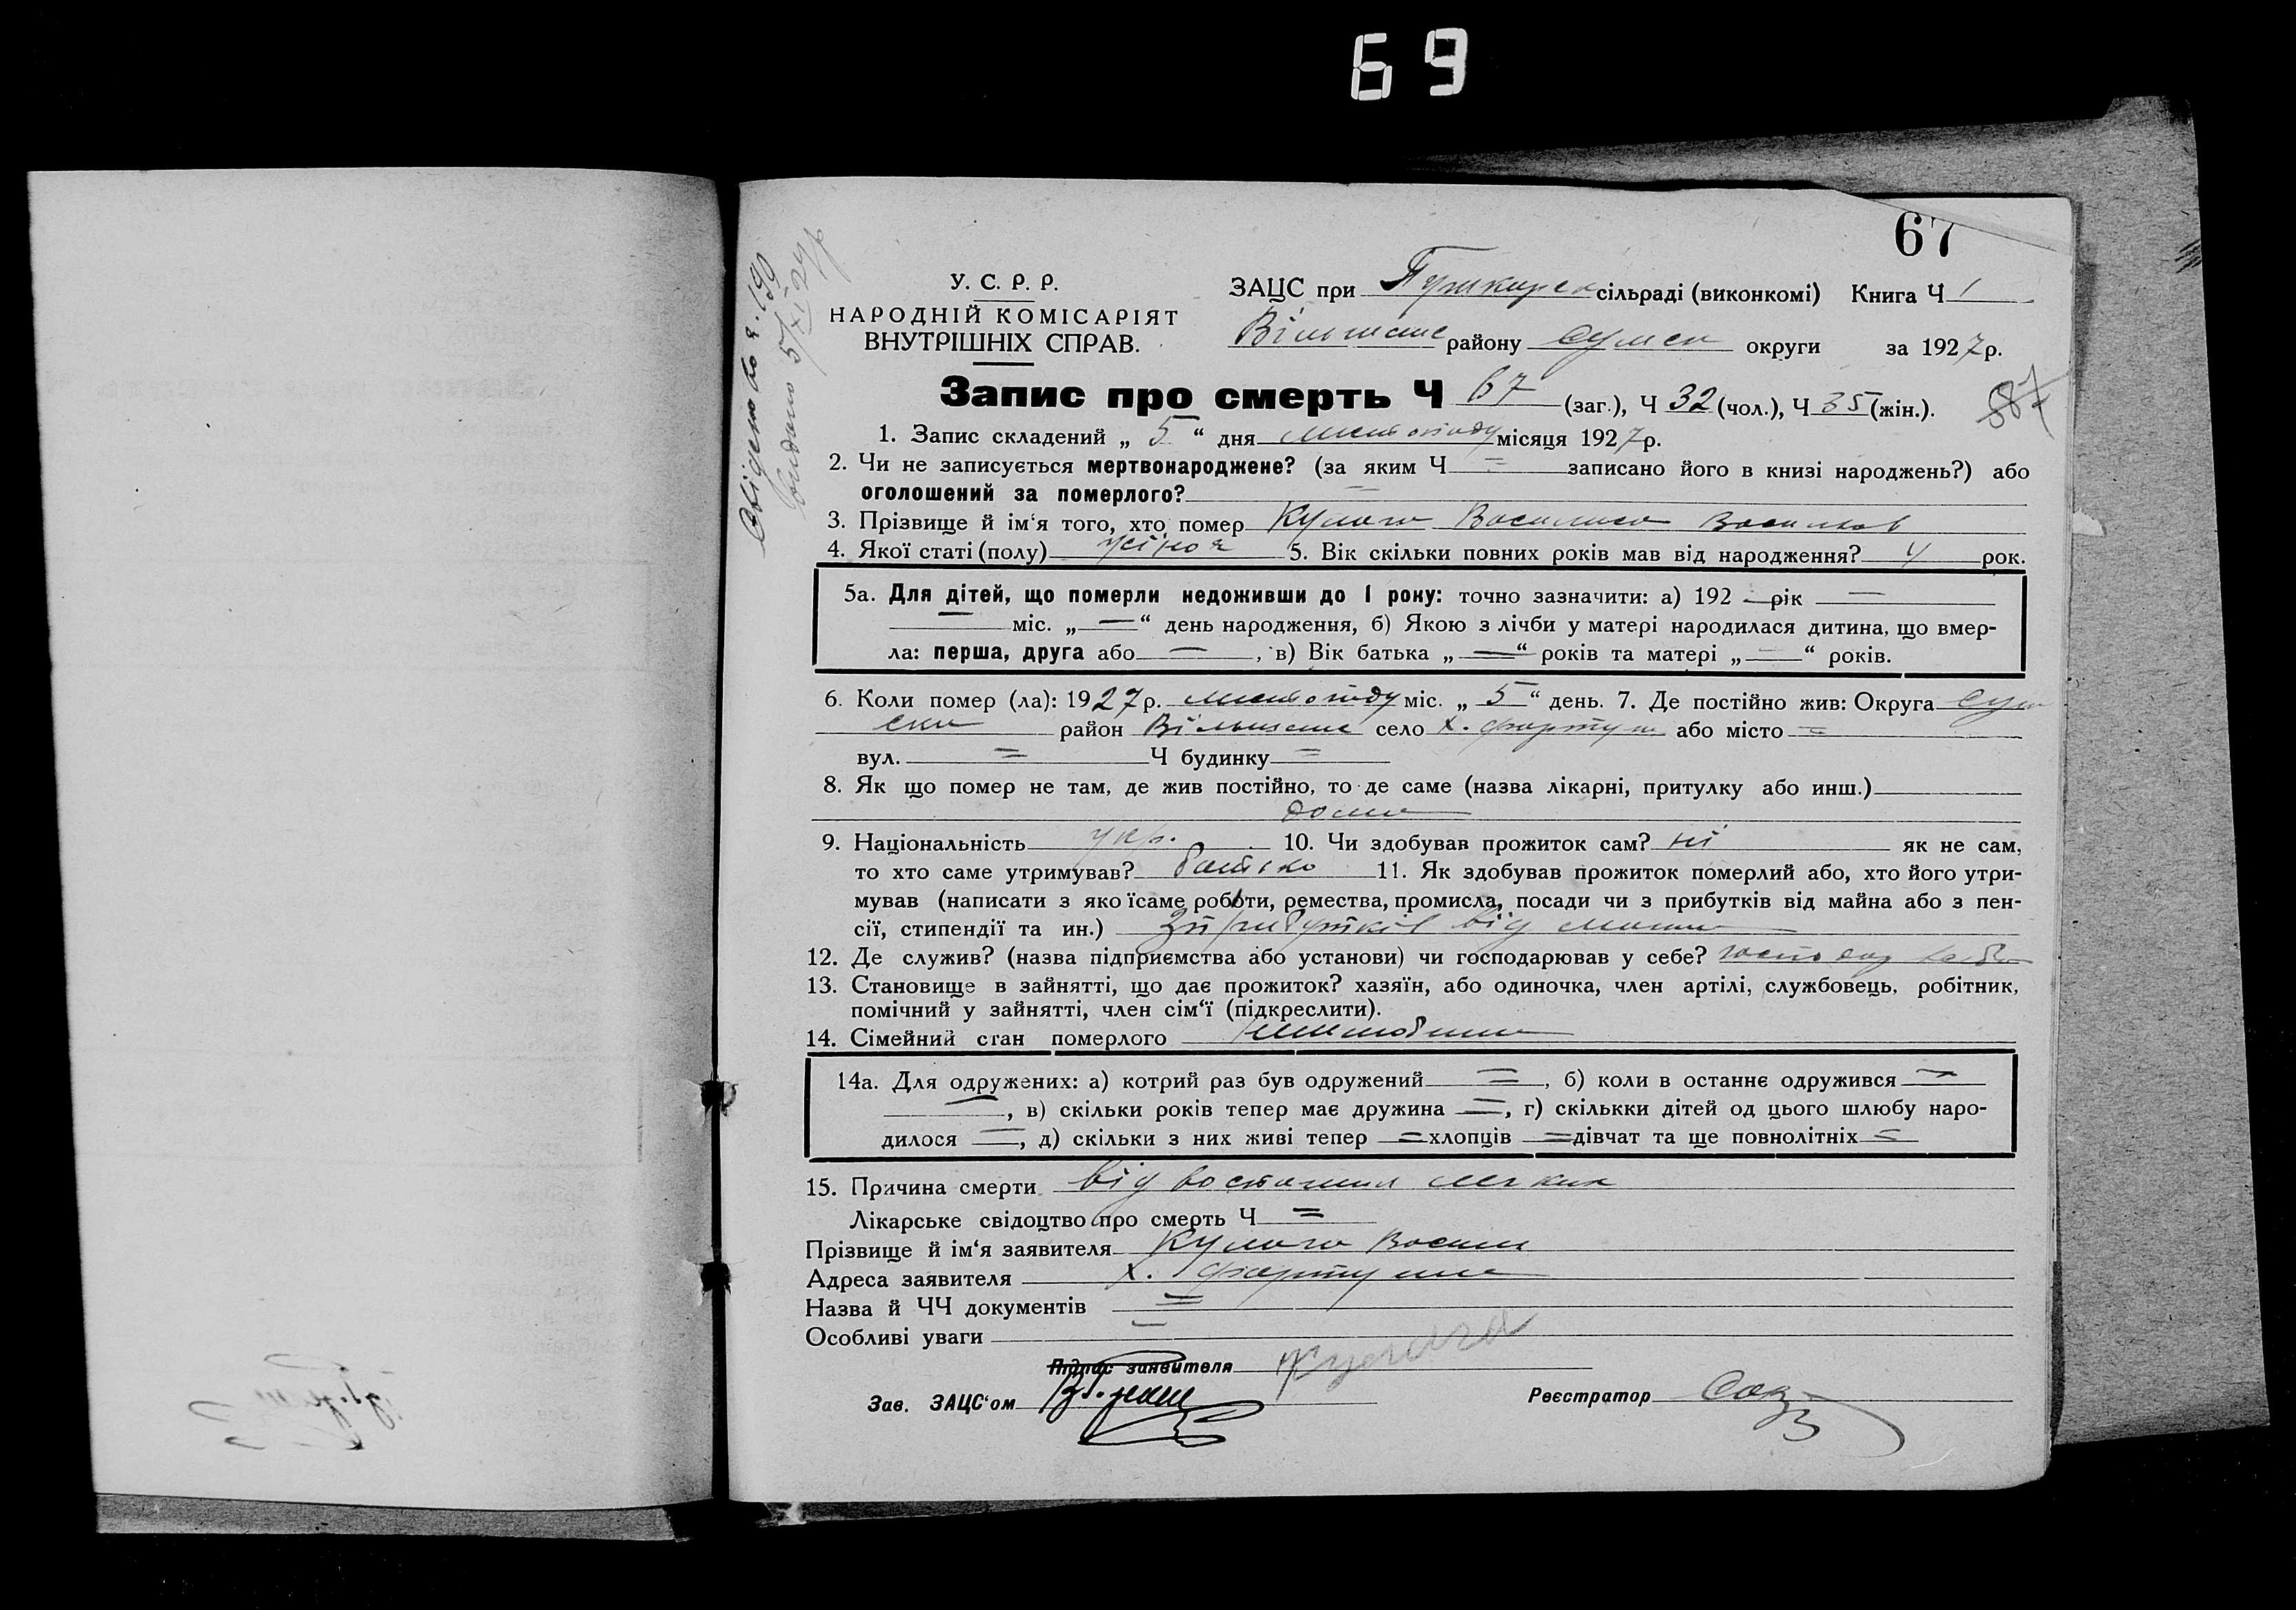 69
67
У. С. Р. Р.
НАРОДНІЙ КОМІСАРІЯТ
ВНУТРІШНІХ СПРАВ.
ЗАЦС при сільраді (виконкомі) Книга Ч 1
району Сумськ округи за 1927 р.
587
Запис про смерть Ч 67 (заг.), Ч 32 (чол.), Ч 35 (жін.).
1. Запис складений „ 5 “ дня листопаду місяця 1927 р.
2. Чи не записується мертвонароджене? (за яким Ч = записано його в книзі народжень?) або
оголошений за померлого? —
3. Прізвище й ім‘я того, хто помер Кулага Василиса Васильов
4. Якої статі (полу) жіноя 5. Вік скільки повних років мав від народження? 4 рок.
5а. Для дітей, що померли недоживши до 1 року: точно зазначити: а) 192 — рік —
— міс. „ — “ день народження, б) Якою з лічби у матері народилася дитина, що вмер-
ла: перша, друга або — , в) Вік батька „ — “ років та матері „ — “ років.
6. Коли помер (ла): 1927 р. листопаду міс. „ 5 “ день. 7. Де постійно жив: Округа Сум
ська район Вільшанс село х. або місто =
вул. = Ч будинку =
8. Як що помер не там, де жив постійно, то де саме (назва лікарні, притулку або инш.)
дома
9. Національність укр. 10. Чи здобував прожиток сам? ні як не сам,
то хто саме утримував? батько 11. Як здобував прожиток померлий або, хто його утри-
мував (написати з яко їсаме роботи, ремества, промисла, посади чи з прибутків від майна або з пен-
сії, стипендії та ин.) Зприбутків від
12. Де служив? (назва підприємства або установи) чи господарював у себе? господар
13. Становище в зайнятті, що дає прожиток? хазяїн, або одиночка, член артілі, службовець, робітник,
помічний у зайнятті, член сім‘ї (підкреслити).
14. Сімейний стан померлого
14а. Для одружених: а) котрий раз був одружений = , б) коли в останнє одружився —
— , в) скільки років тепер має дружина = , г) скількки дітей од цього шлюбу наро-
дилося = , д) скільки з них живі тепер = хлопців = дівчат та ще повнолітніх =
15. Причина смерти від востания легких
Лікарське свідоцтво про смерть Ч =
Прізвище й ім‘я заявителя Кулага Васил
Адреса заявителя х.
Назва й ЧЧ документів =
Особливі уваги —
Підпис заявителя Кулага
Зав. ЗАЦС‘ом
Реєстратор